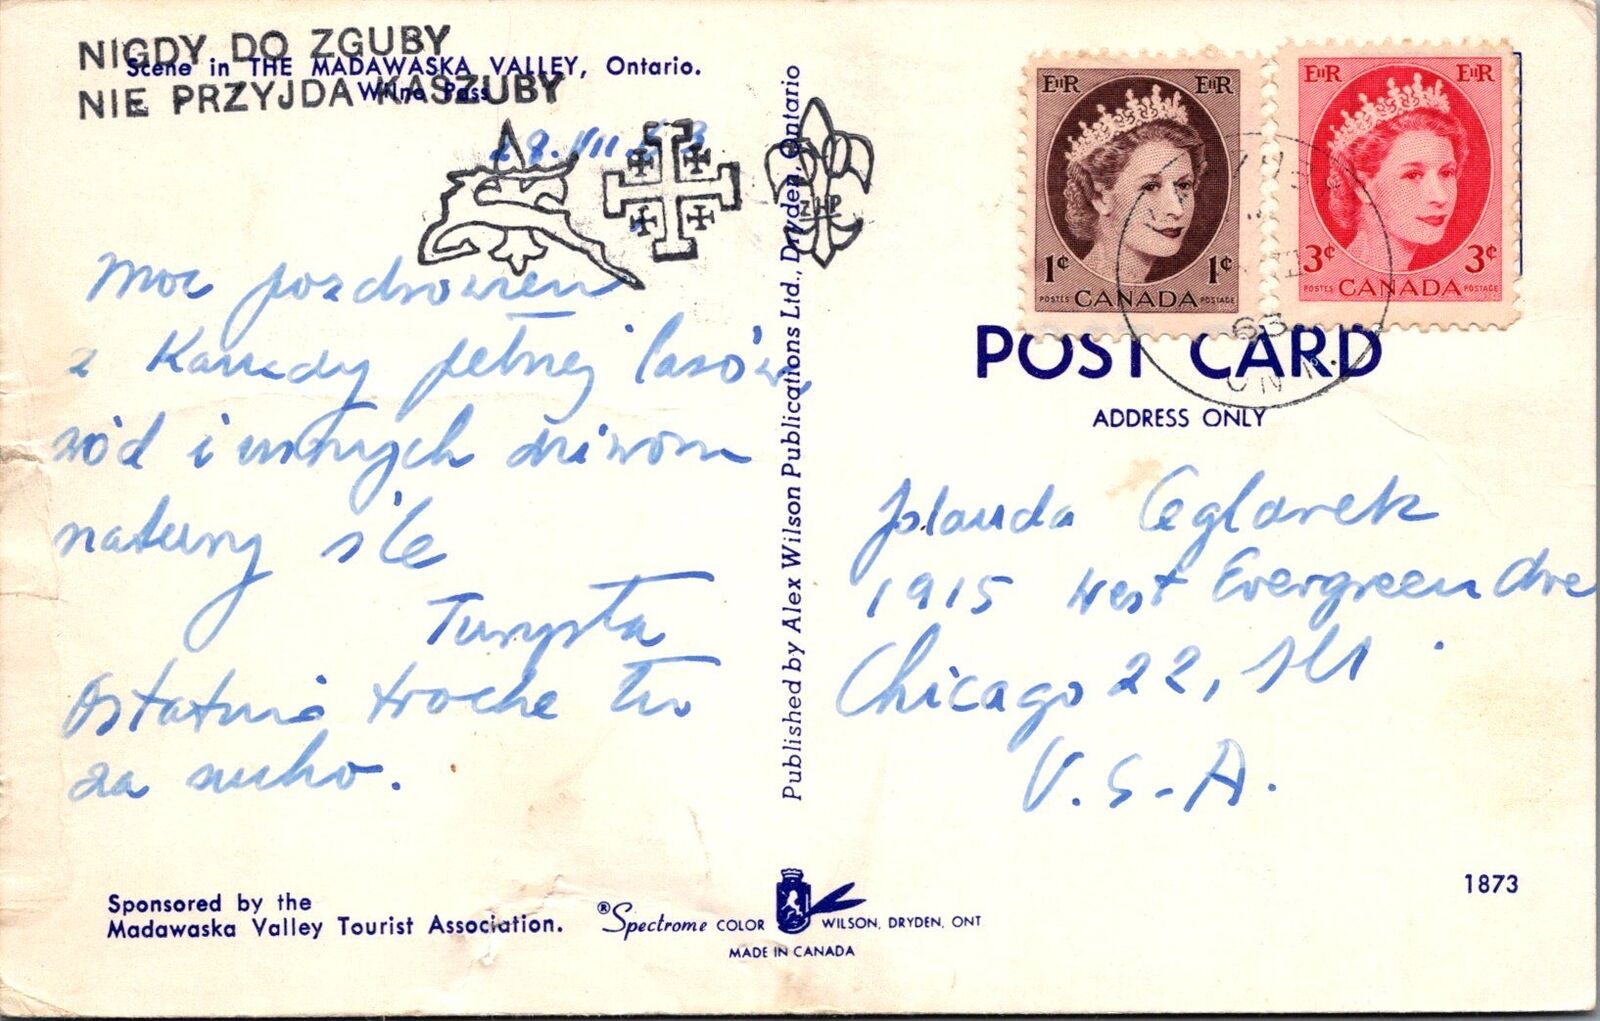 NIGDY DO ZGUBY
Scene in THE MADAWASKA VALLEY, Ontario.
NIE PRZYJDA KASZUBY
Wilno Pass
28.VII.63
ZHP
Moc pozdrowień
z Kanady pełnej lasów
wód i innych dziwów
natury śle
Turysta
Ostatnio trochę tu
za sucho.
Sponsored by the
Madawaska Valley Tourist Association.
Published by Alex Wilson Publications Ltd., Dryden, Ontario
®Spectrome COLOR WILSON, DRYDEN, ONT
MADE IN CANADA
EIIR EIIR
1¢ 1¢
POSTES CANADA POSTAGE
EIIR EIIR
3¢ 3¢
POSTES CANADA POSTAGE
63
POST CARD
ADDRESS ONLY
Jolanda Ceglarek
1915 West Evergreen Ave
Chicago 22, Ill.
U.S.A.
1873